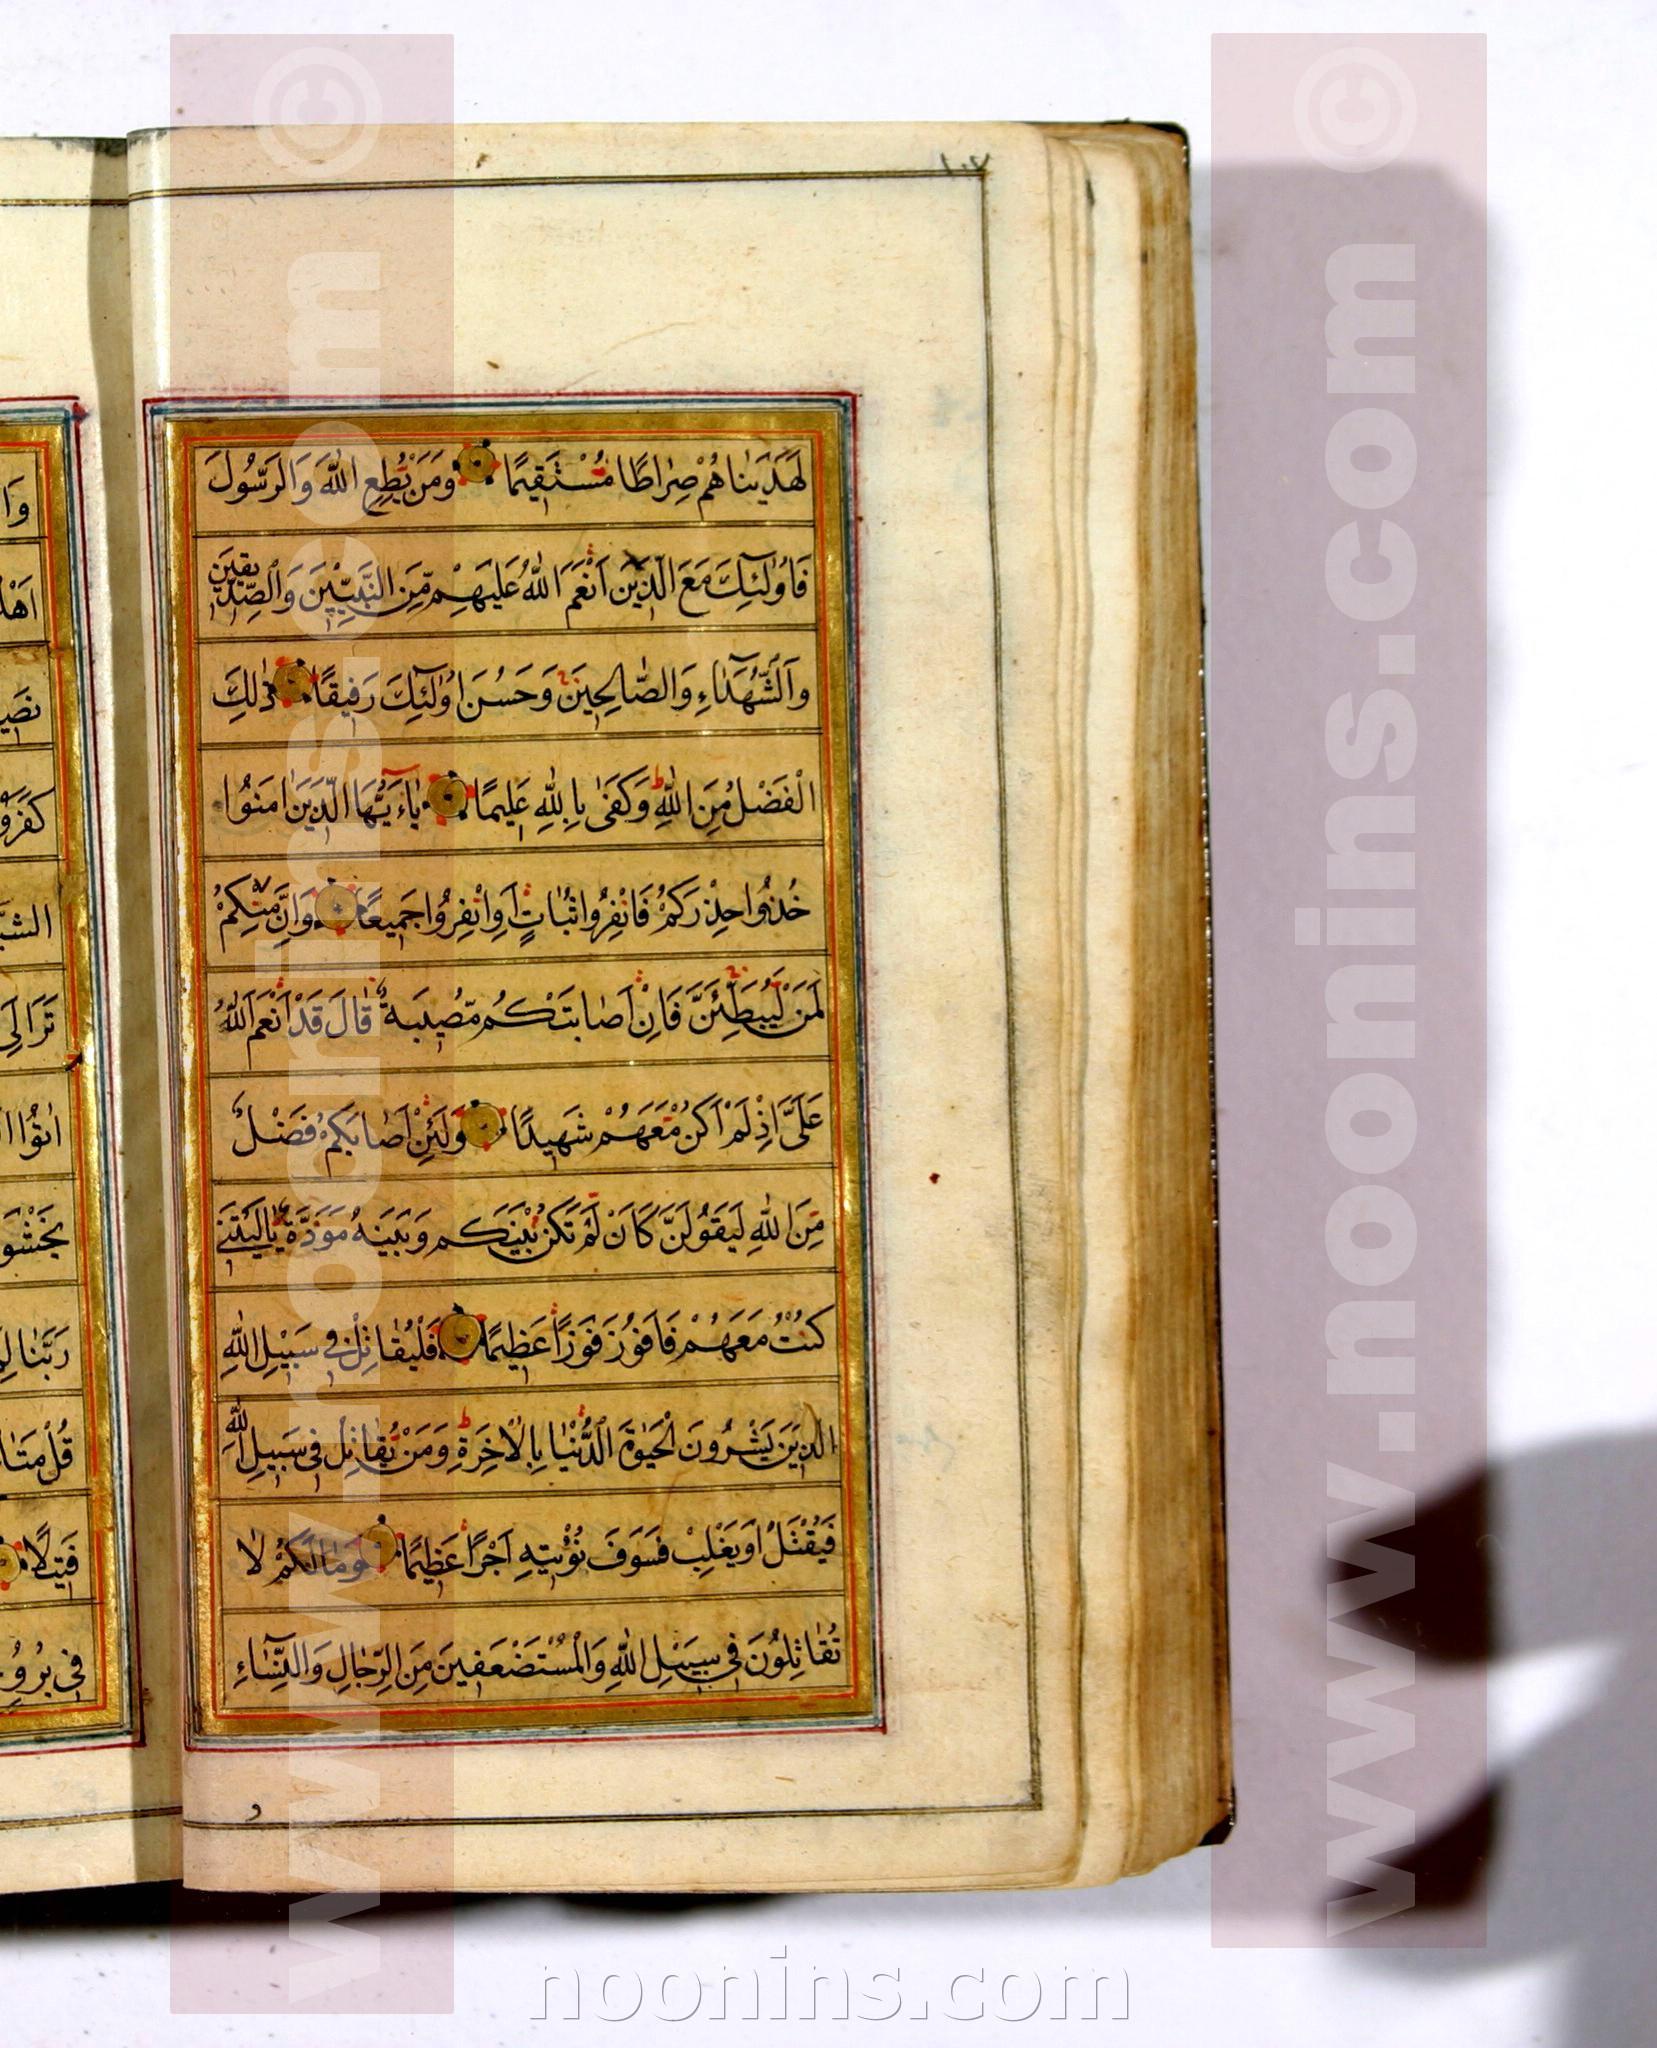 لَهَدَيْنَاهُمْ صِرَاطًا مُسْتَقِيمًا وَمَنْ يُطِعِ اللّٰهَ وَالرَّسُولَ
فَاُولٰئِكَ مَعَ الَّذِينَ اَنْعَمَ اللّٰهُ عَلَيْهِمْ مِنَ النَّبِيِّينَ وَالصِّدِّيقِينَ
وَالشُّهَدَاءِ وَالصَّالِحِينَ وَحَسُنَ اُولٰئِكَ رَفِيقًا ذٰلِكَ
الْفَضْلُ مِنَ اللّٰهِ وَكَفٰى بِاللّٰهِ عَلِيمًا يَاءَيُّهَا الَّذِينَ اٰمَنُوا
خُذُوا حِذْرَكُمْ فَانْفِرُوا ثُبَاتٍ اَوِ انْفِرُوا جَمِيعًا وَاِنَّ مِنْكُمْ
لَمَنْ لَيُبَطِّئَنَّ فَاِنْ اَصَابَتْكُمْ مُصِيبَةٌ قَالَ قَدْ اَنْعَمَ اللّٰهُ
عَلَيَّ اِذْ لَمْ اَكُنْ مَعَهُمْ شَهِيدًا وَلَئِنْ اَصَابَكُمْ فَضْلٌ
مِنَ اللّٰهِ لَيَقُولَنَّ كَاَنْ لَمْ تَكُنْ بَيْنَكُمْ وَبَيْنَهُ مَوَدَّةٌ يَالَيْتَنِي
كُنْتُ مَعَهُمْ فَاَفُوزَ فَوْزًا عَظِيمًا فَلْيُقَاتِلْ فِي سَبِيلِ اللّٰهِ
الَّذِينَ يَشْرُونَ الْحَيٰوةَ الدُّنْيَا بِالْاٰخِرَةِ وَمَنْ يُقَاتِلْ فِي سَبِيلِ اللّٰهِ
فَيُقْتَلْ اَوْ يَغْلِبْ فَسَوْفَ نُؤْتِيهِ اَجْرًا عَظِيمًا وَمَا لَكُمْ لَا
تُقَاتِلُونَ فِي سَبِيلِ اللّٰهِ وَالْمُسْتَضْعَفِينَ مِنَ الرِّجَالِ وَالنِّسَاءِ
و
وَا
اَهْد
نَصِي
كَفَرُو
الشَّي
تَرَ اِلَى
اٰتُوا ا
يَخْشَو
رَبَّنَا لِمَ
قُلْ مَتَا
فَتِيلًا
فِي بُرُو
www.noonins.com ©
www.noonins.com ©
noonins.com